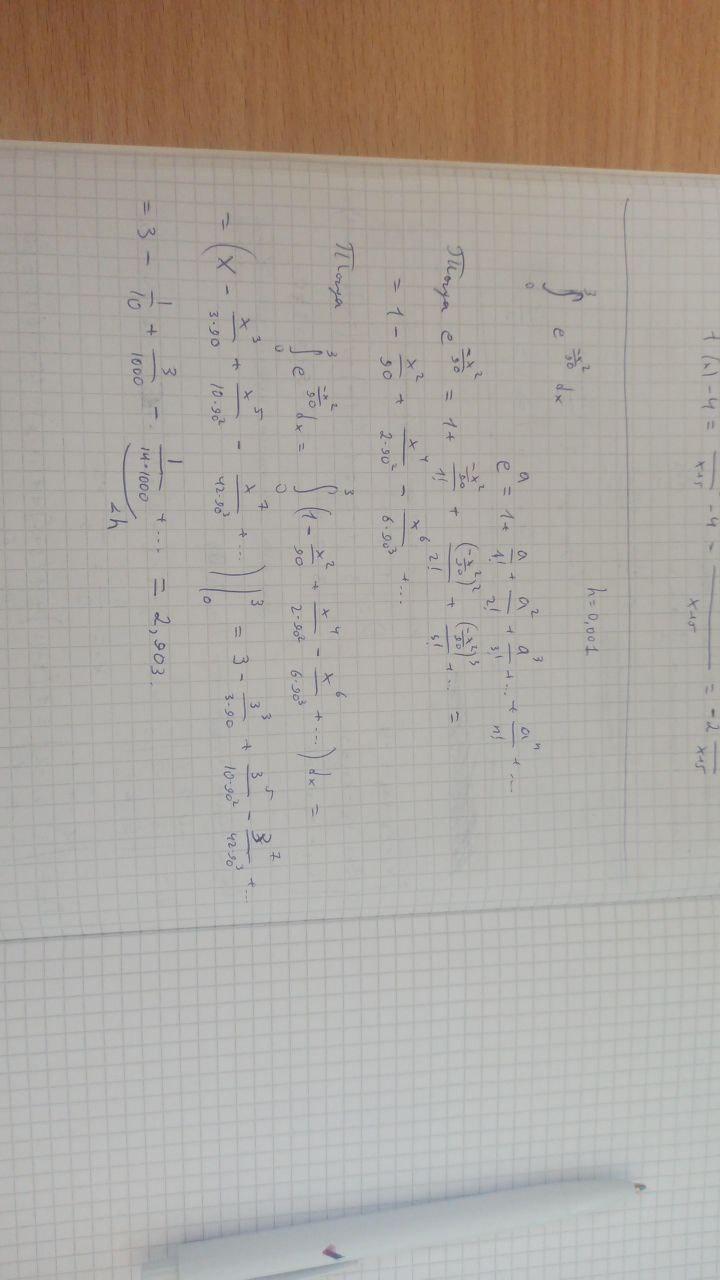 f(x) - 4 = ‾/(x+5) - 4 = ‾/(x+5) = -2 ‾/(x+5)
h = 0,001
∫₀³ e^(-x²/90) dx
e^a = 1 + a/1! + a²/2! + a³/3! + ... + aⁿ/n! + ...
Тогда e^(-x²/90) = 1 + (-x²/90)/1! + (-x²/90)²/2! + (-x²/90)³/3! + ... =
= 1 - x²/90 + x⁴/(2·90²) - x⁶/(6·90³) + ...
Тогда
∫₀³ e^(-x²/90) dx = ∫₀³ (1 - x²/90 + x⁴/(2·90²) - x⁶/(6·90³) + ...) dx =
= (x - x³/(3·90) + x⁵/(10·90²) - x⁷/(42·90³) + ...)|₀³ = 3 - 3³/(3·90) + 3⁵/(10·90²) - 3⁷/(42·90³) + ...
= 3 - 1/10 + 3/1000 - 1/(14·1000) + ... = 2,903.
<h